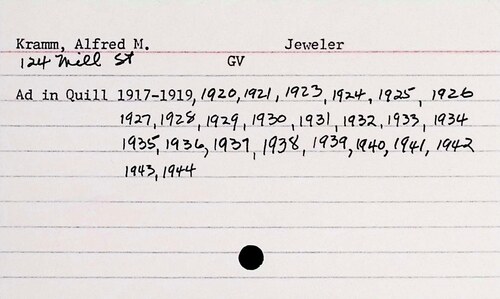 Kramm, Alfred M. Jeweler
124 Mill St GV
Ad in Quill 1917-1919, 1920, 1921, 1923, 1924, 1925, 1926
1927, 1928, 1929, 1930, 1931, 1932, 1933, 1934
1935, 1936, 1937, 1938, 1939, 1940, 1941, 1942
1943, 1944